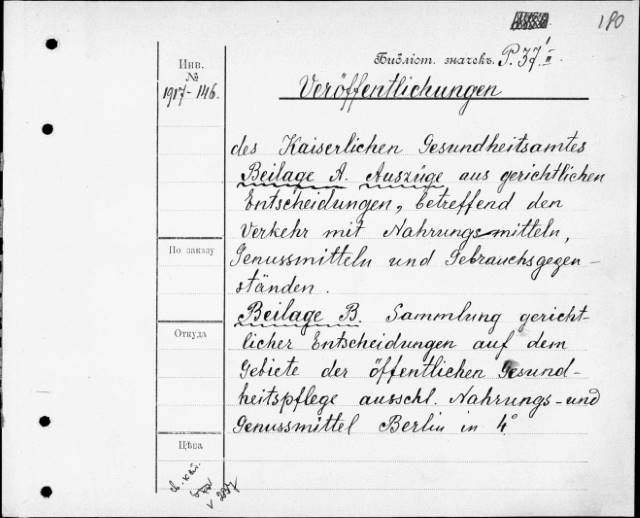 180
Инв.
№
1917-146.
Библіот. значекъ. P. 37 I/II.
Veröffentlichungen
des Kaiserlichen Gesundheitsamtes
Beilage A. Auszüge aus gerichtlichen
Entscheidungen, betreffend den
Verkehr mit Nahrungsmitteln,
Genussmitteln und Gebrauchsgegen-
ständen.
Beilage B. Sammlung gericht-
licher Entscheidungen auf dem
Gebiete der öffentlichen Gesund-
heitspflege ausschl. Nahrungs- und
Genussmittel Berlin in 4°
По заказу
Откуда
Цѣна